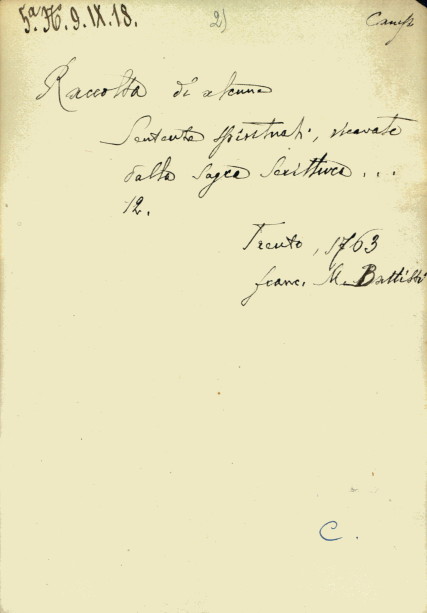 5ª.H.9.IX.18.
2)
Camp
Raccolta di alcune
Sentenze spirituali, ricavate
dalla Sagra Scrittura ...
12.
Trento, 1763
franc. M. Battisti
C.